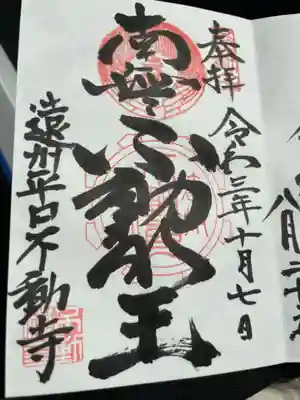 奉拝
令和三年十月七日
南無不動明王
遠州平口不動寺
八月二十